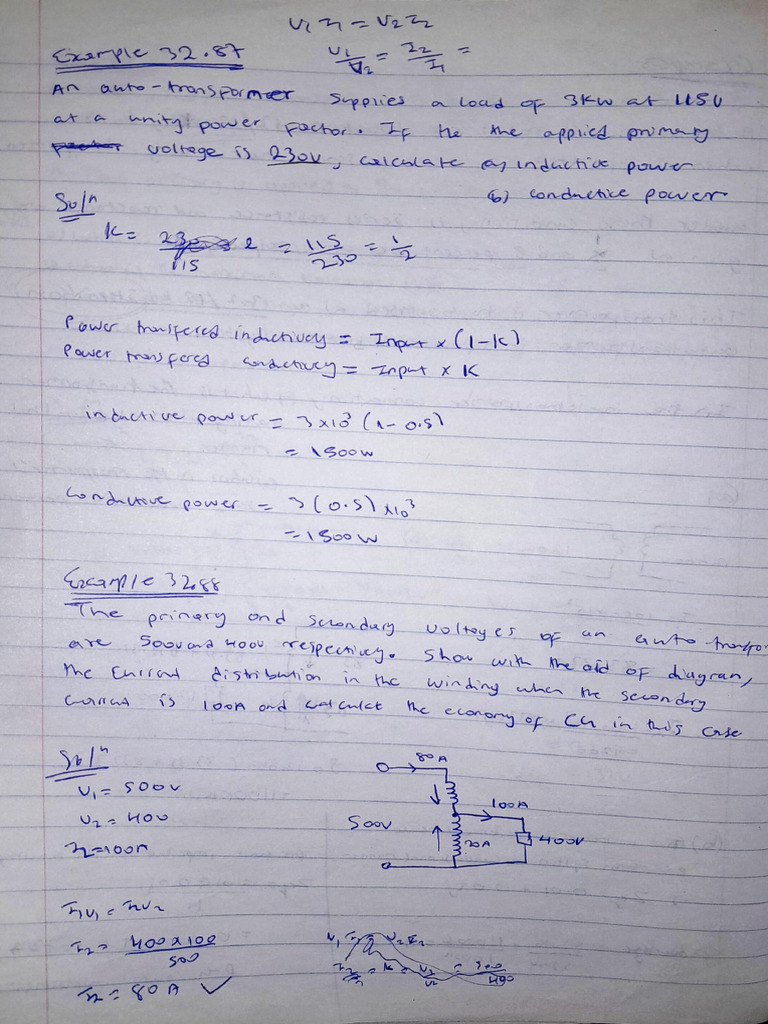 V₁I₁ = V₂I₂
V₁/V₂ = I₂/I₁ =
Example 32.87
An auto-transformer supplies a load of 3KW at 115V
at a unity power factor. If the the applied primary
voltage is 230V, calculate a, inductive power
(b) conductive power
Solⁿ
K = 230/115 2 = 115/230 = 1/2
Power transfered inductively = Input x (1-K)
Power transfered conductively = Input x K
inductive power = 3x10³ (1-0.5)
= 1500w
conductive power = 3(0.5) x10³
= 1500W
Example 32.88
The primary and secondary voltages of an auto-transfo
are 500V and 400V respectively. Show with the aid of diagram,
the current distribution in the winding when the secondary
current is 100A and calculate the economy of Cu in this case
Solⁿ
V₁ = 500V
V₂ = 400
I₂ = 100A
80A
100A
500V
20A
400V
I₁V₁ = I₂V₂
I₂ = 400x100/500
I₂ = 80A ✓
V₁I₁ V₂I₂
= K = V₂/V₁ = 500/400